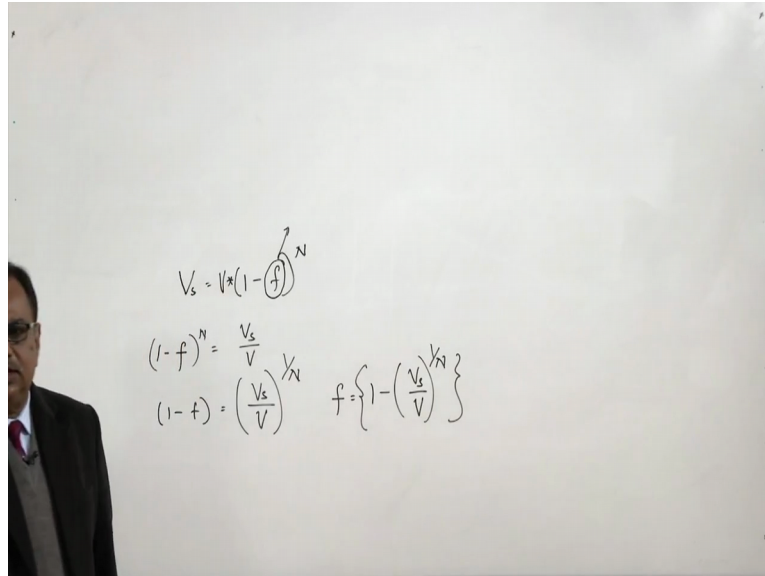 Vs = V*(1-f)^N
(1-f)^N = Vs/V
(1-f) = (Vs/V)^1/N f = {1-(Vs/V)^1/N}